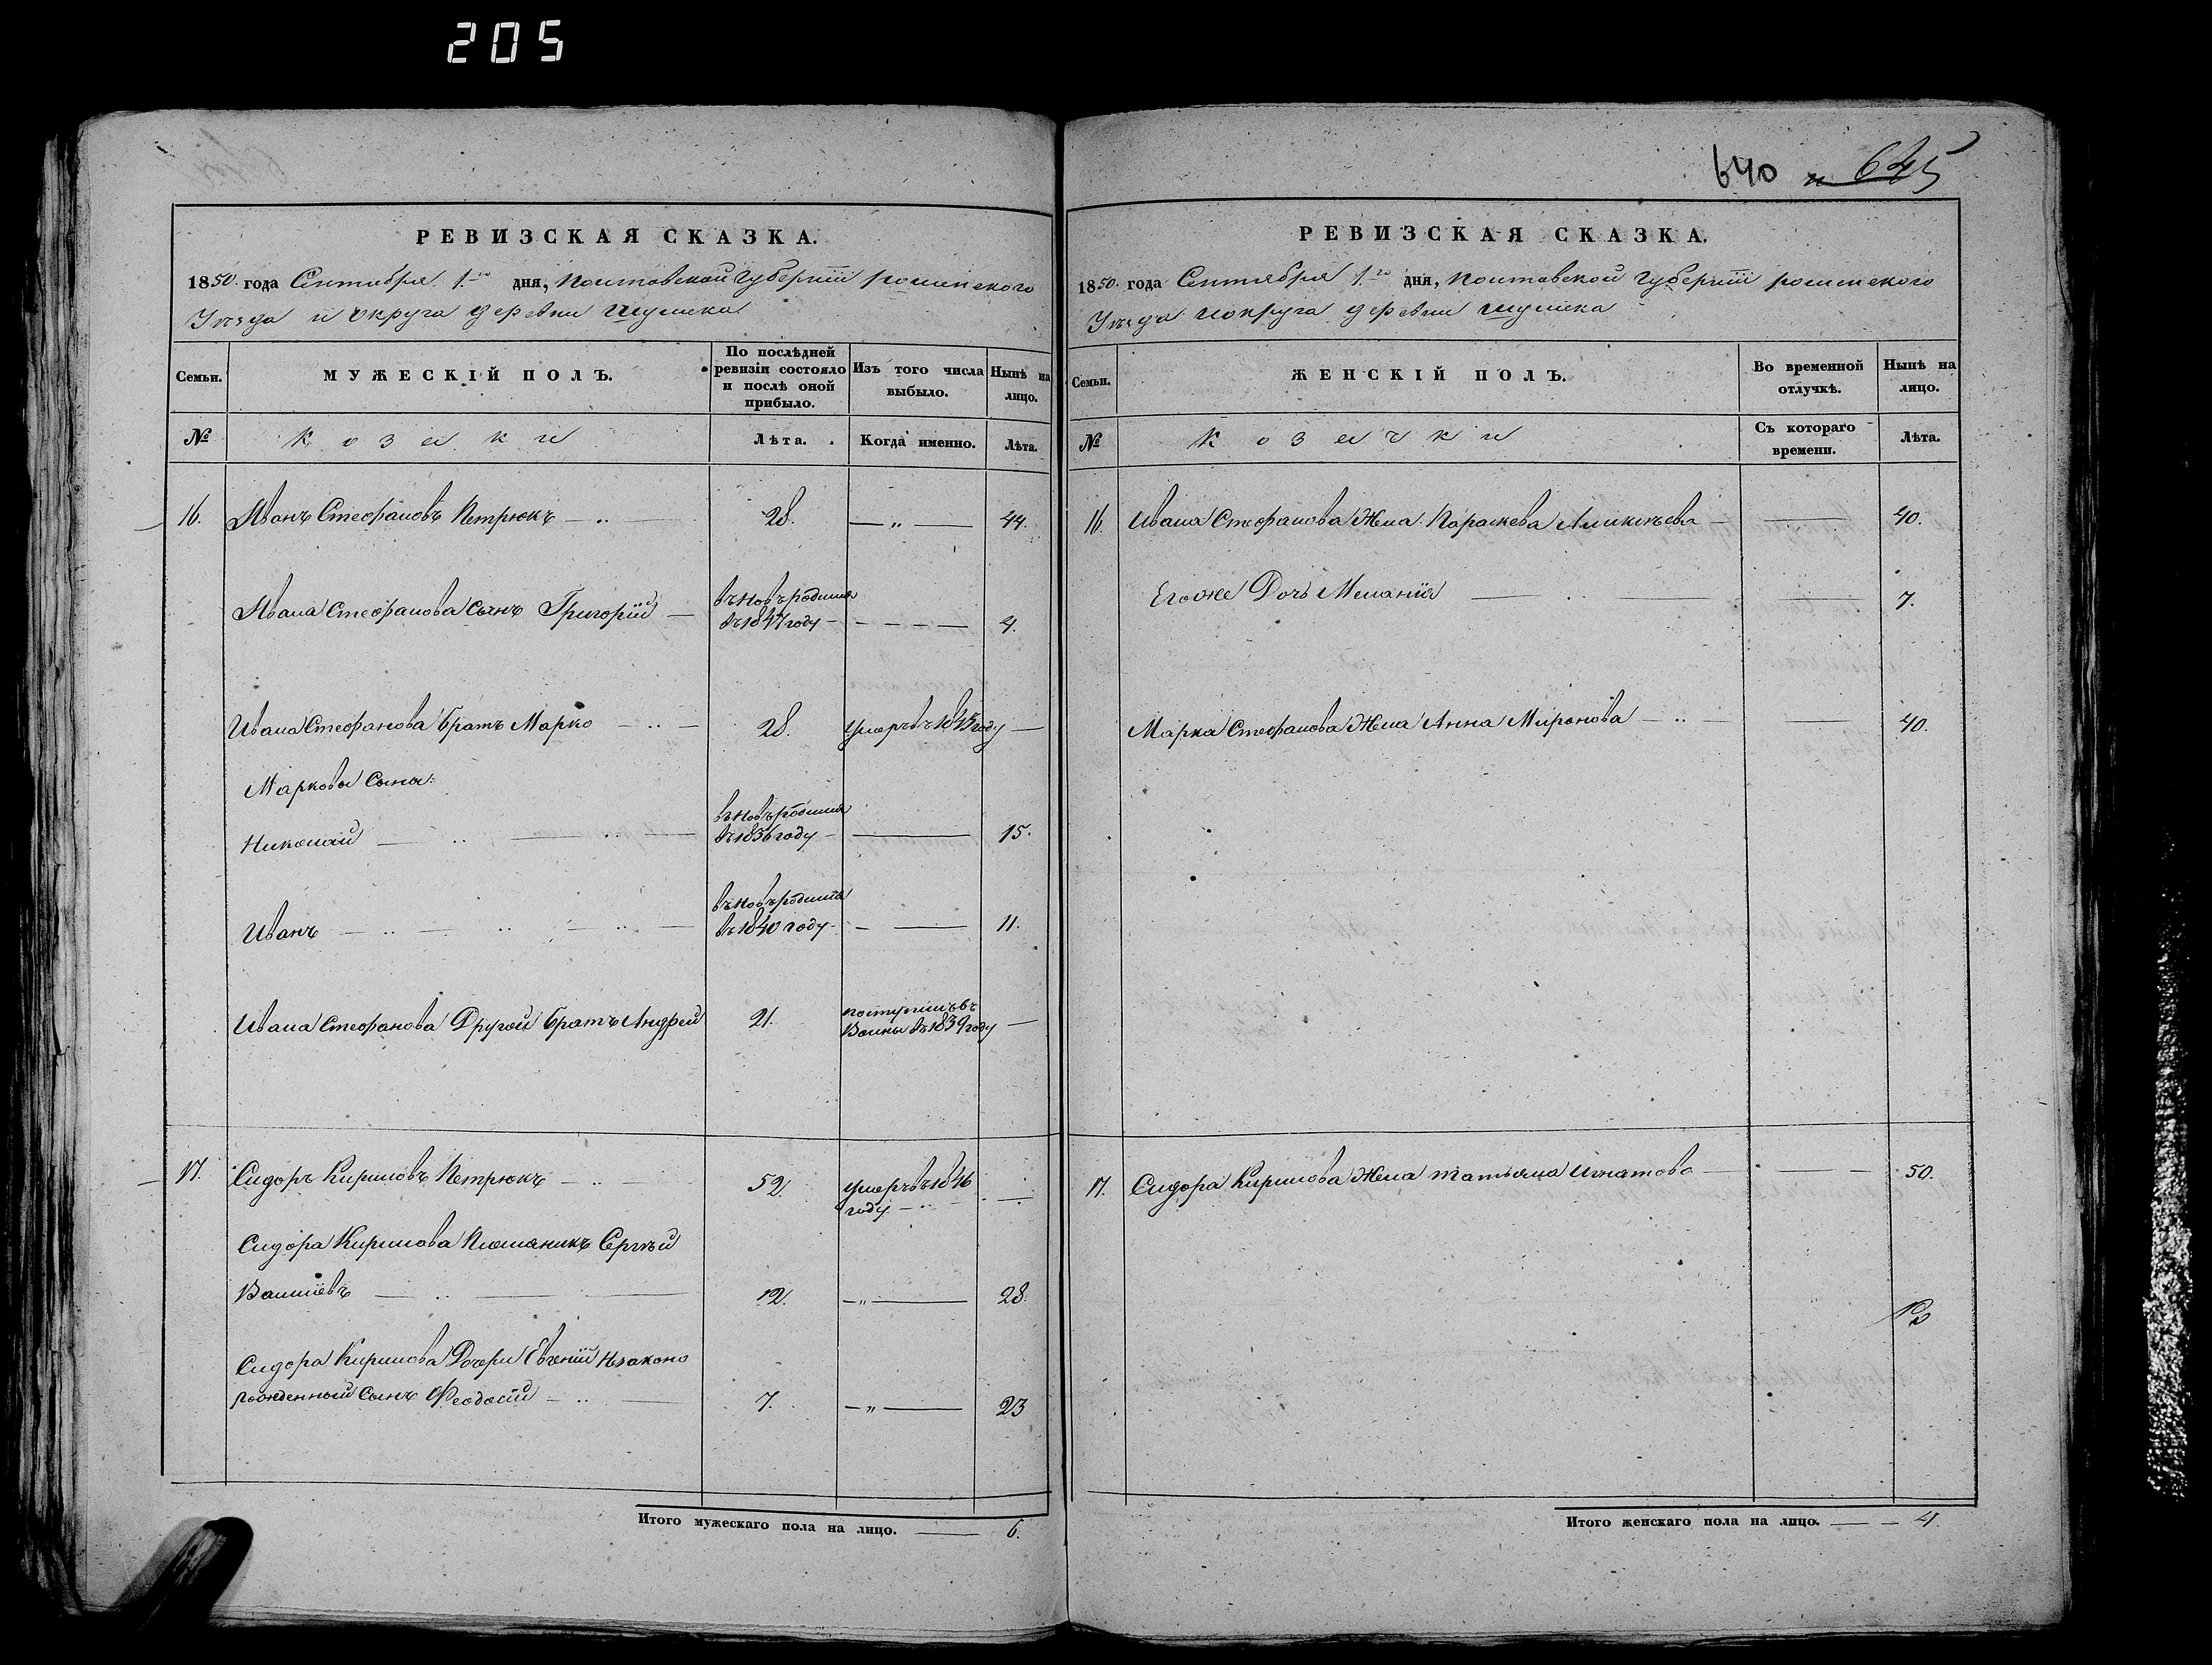 205
640 645
РЕВИЗСКАЯ СКАЗКА.
1850 года Сентября 1го дня, Полтавской Губерніи роменского
Уѣзда и округа деревни Шумска
Семьи. МУЖЕСКІЙ ПОЛЪ. По послѣдней ревизіи состояло и послѣ оной прибыло. Изъ того числа выбыло. Нынѣ на лицо.
№ козаки Лѣта. Когда именно. Лѣта.
16. Иванъ Стефановъ Петрюкъ 28. 44.
Ивана Стефанова сынъ Григорій въ 1847 году 4.
Ивана Стефанова братъ Марко 28. умеръ въ 1843 году
Марковы сыны:
Николай въ 1836 году 15.
Иванъ въ 1840 году 11.
Ивана Стефанова Другой братъ Андрей 21. въ 1839 году
17. Сидоръ Кириловъ Петрюкъ 52. умеръ въ 1846
году
Сидора Кирилова Племаникъ Сергѣй
12. 28.
Сидора Кирилова Дочери Евгеніи Незаконо
рожденный сынъ Феодосій 7. 23
Итого мужескаго пола на лицо. 6.
РЕВИЗСКАЯ СКАЗКА.
1850 года Сентября 1го дня, Полтавской Губерніи роменского
Уѣзда и округа деревни Шумска
Семьи. ЖЕНСКІЙ ПОЛЪ. Во временной отлучкѣ. Нынѣ на лицо.
№ козачки Съ котораго времени. Лѣта.
16. Ивана Стефанова Жена Параскева 40.
Егоже Дочь Меланія 7.
Марка Стефанова Жена Анна Миронова 40.
17. Сидора Кирилова Жена татьяна Игнатова 50.
Итого женскаго пола на лицо. 4.